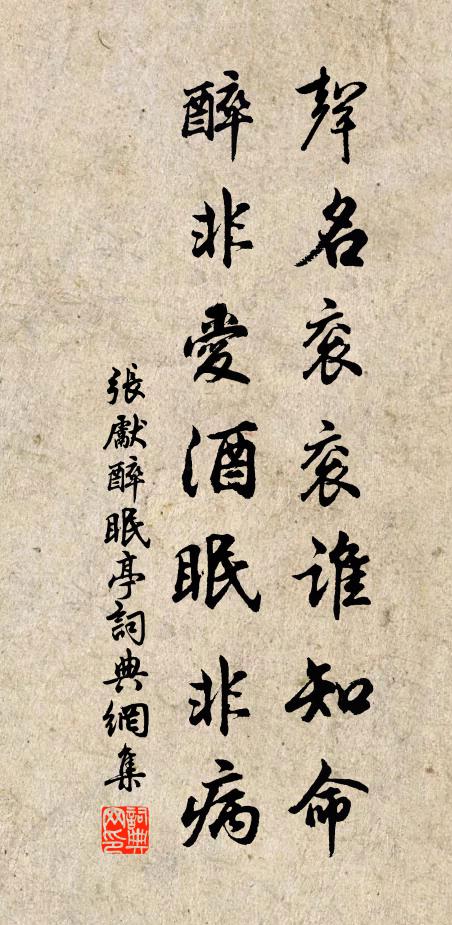 聲名衮衮誰知命
醉非愛酒眠非病
張獻醉眠亭詞典網集
詞典
网印